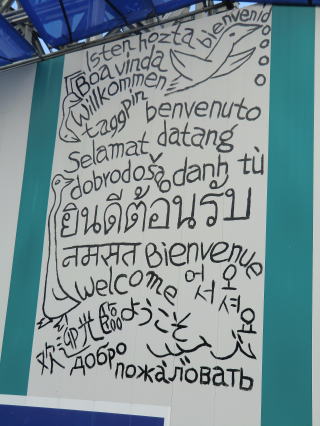 Isten hozta bienvenid
Boa vinda
Willkommen
taggpin benvenuto
Selamat datang
dobrodoš danh từ
ยินดีต้อนรับ
नमसत Bienvenue
Welcome 어서오세요
ようこそ
добро
пожаловать